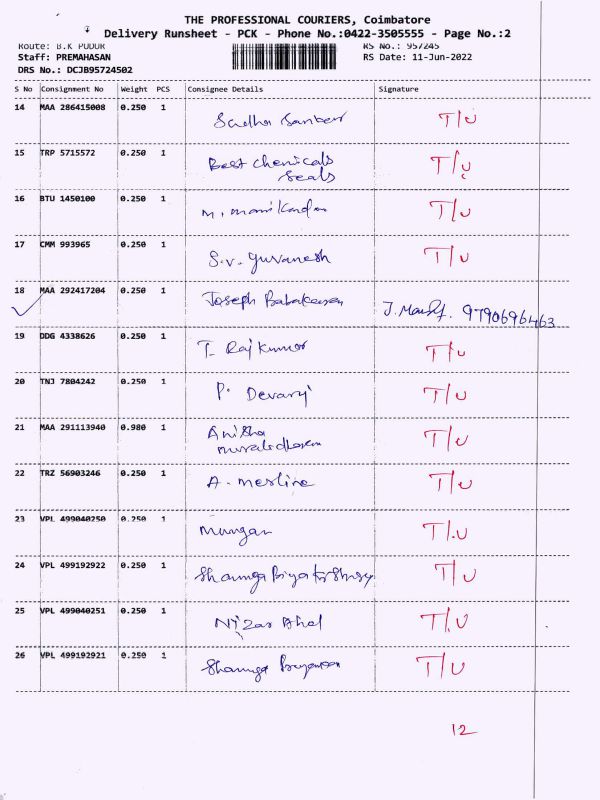 THE PROFESSIONAL COURIERS, Coimbatore
Delivery Runsheet - PCK - Phone No.:0422-3505555 - Page No.:2
Route: B.K PUDUR RS No.: 957245
Staff: PREMAHASAN RS Date: 11-Jun-2022
DRS No.: DCJB95724502
S No Consignment No Weight PCS Consignee Details Signature
14 MAA 286415008 0.250 1 T/U
15 TRP 5715572 0.250 1 Best chemicals T/U
Seals
16 BTU 1450100 0.250 1 M. manikandan T/U
17 CMM 993965 0.250 1 S.v. guvanesh T/U
18 MAA 292417204 0.250 1 Joseph J. 9790696463
19 DDG 4338626 0.250 1 T. Rajkumar T/U
20 TNJ 7804242 0.250 1 P. Devaraj T/U
21 MAA 291113940 0.980 1 Anisha T/U
22 TRZ 56903246 0.250 1 A. merline T/U
23 VPL 499040250 0.250 1 Murugan T/.U
24 VPL 499192922 0.250 1 T/U
25 VPL 499040251 0.250 1 T/.U
26 VPL 499192921 0.250 1 T/U
12